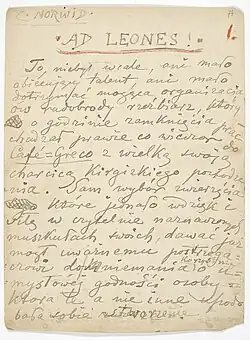 C. NORWID.
"AD LEONES!"
1.
To, niebył wcale, ani mało
obiecujący talent, ani mało
dotrzymać mogąca organizacja
ów rudobrody rzeźbiarz, który
o godzinie zamknięcia prac
chadzał prawie co wieczór do
Café-Greco z wielką swoją
charcicą Kirgizkiego pochodze
nia. Sam wybór zwierzęcia
które umiało wdzięk i
siłę w czytelnie narysowanych
muskułach swoich, dawać już
mógł uważnemu postrzega-
czowi do
mysłowej godność osoby
która te a nie inne upodo
bała sobie stworzenie.